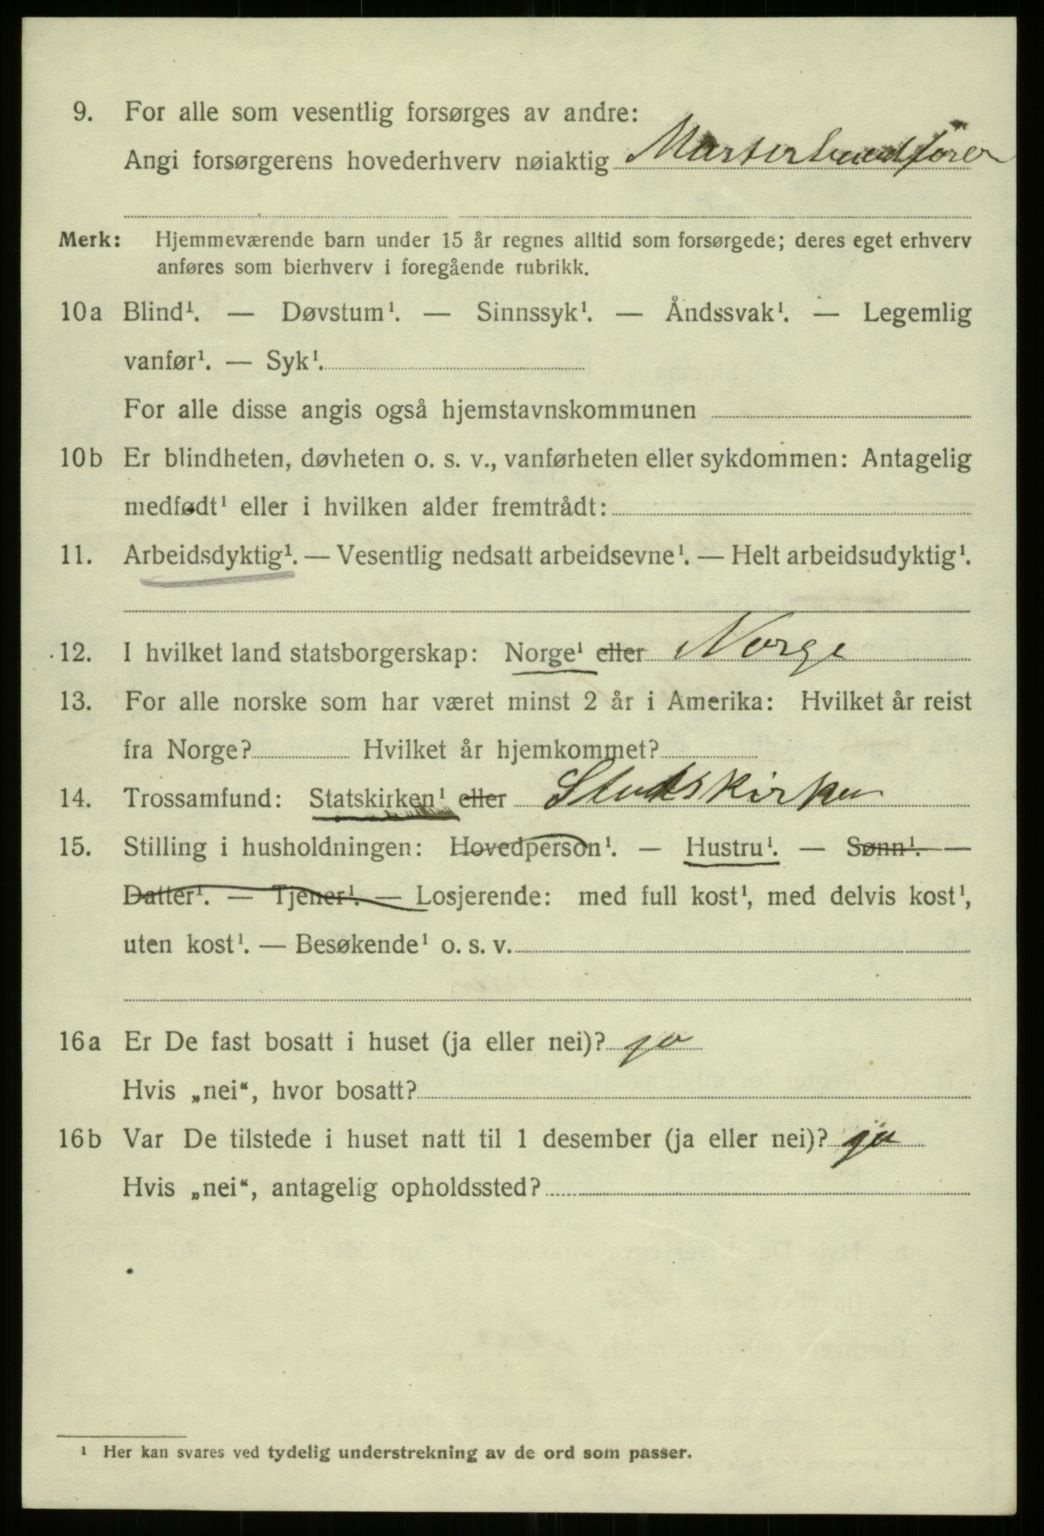 9. For alle som vesentlig forsørges av andre:
Angi forsørgerens hovederhverv nøiaktig
Merk: Hjemmeværende barn under 15 år regnes alltid som forsørgede; deres eget erhverv
anføres som bierhverv i foregående rubrikk.
10a Blind¹. — Døvstum¹. — Sinnssyk¹. — Åndssvak¹. — Legemlig
vanfør¹. — Syk¹.
For alle disse angis også hjemstavnskommunen
10b Er blindheten, døvheten o. s. v., vanførheten eller sykdommen: Antagelig
medfødt¹ eller i hvilken alder fremtrådt:
11. Arbeidsdyktig¹. — Vesentlig nedsatt arbeidsevne¹. — Helt arbeidsudyktig¹.
12. I hvilket land statsborgerskap: Norge¹ eller Norge
13. For alle norske som har været minst 2 år i Amerika: Hvilket år reist
fra Norge? Hvilket år hjemkommet?
14. Trossamfund: Statskirken¹ eller Statskirken
15. Stilling i husholdningen: Hovedperson¹. — Hustru¹. — Sønn¹. —
Datter¹. — Tjener¹. — Losjerende: med full kost¹, med delvis kost¹,
uten kost¹. — Besøkende¹ o. s. v.
16a Er De fast bosatt i huset (ja eller nei)? ja
Hvis „nei“, hvor bosatt?
16b Var De tilstede i huset natt til 1 desember (ja eller nei)? ja
Hvis „nei“, antagelig opholdssted?
¹ Her kan svares ved tydelig understrekning av de ord som passer.